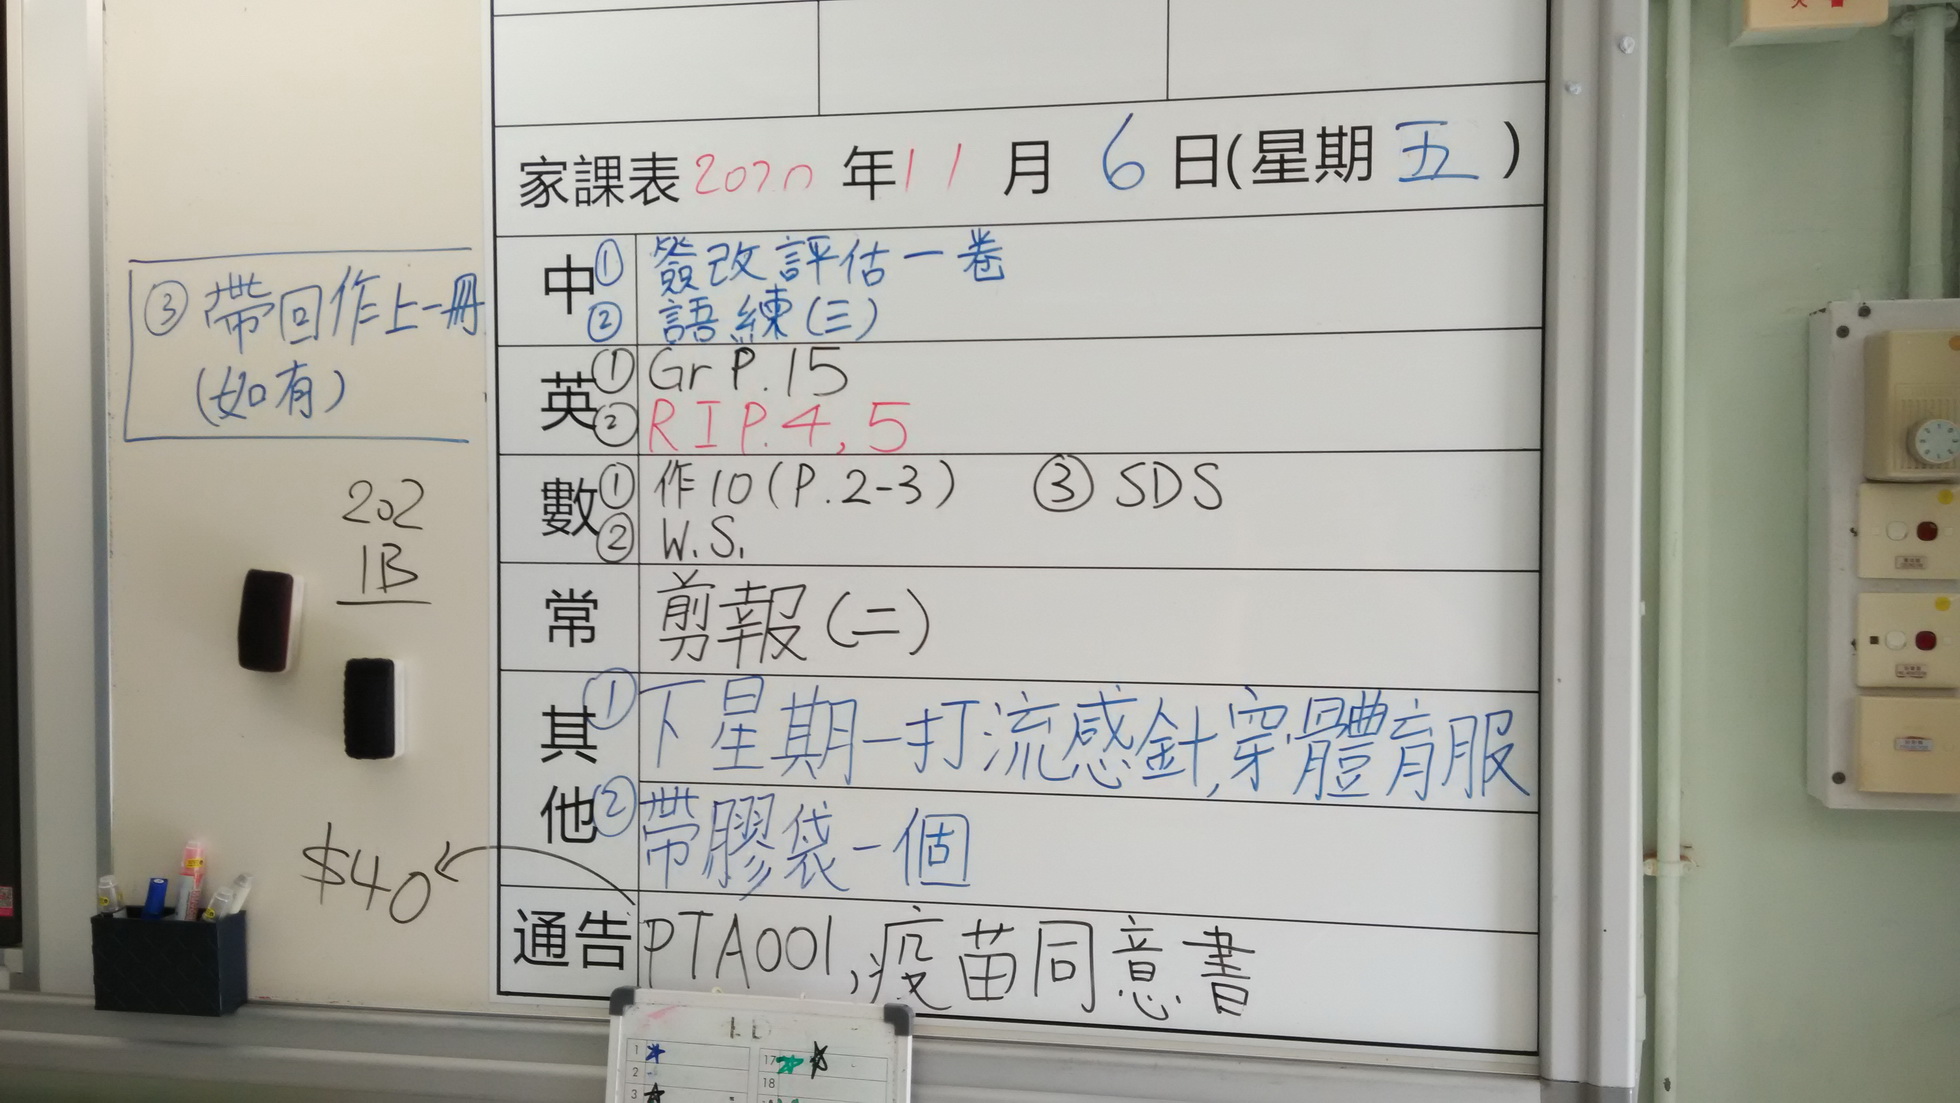 家課表2020年11月6日(星期五)
中①簽改評估一卷
②語練(三)
③帶回作上一冊
(如有)
英①Gr P.15
②RIP.4,5
數①作10(P.2-3) ③SDS
②W.S.
202
1B
常 剪報(二)
其他①下星期一打流感針,穿體育服
②帶膠袋一個
$40
通告 PTA001,疫苗同意書
1
17
2
18
3